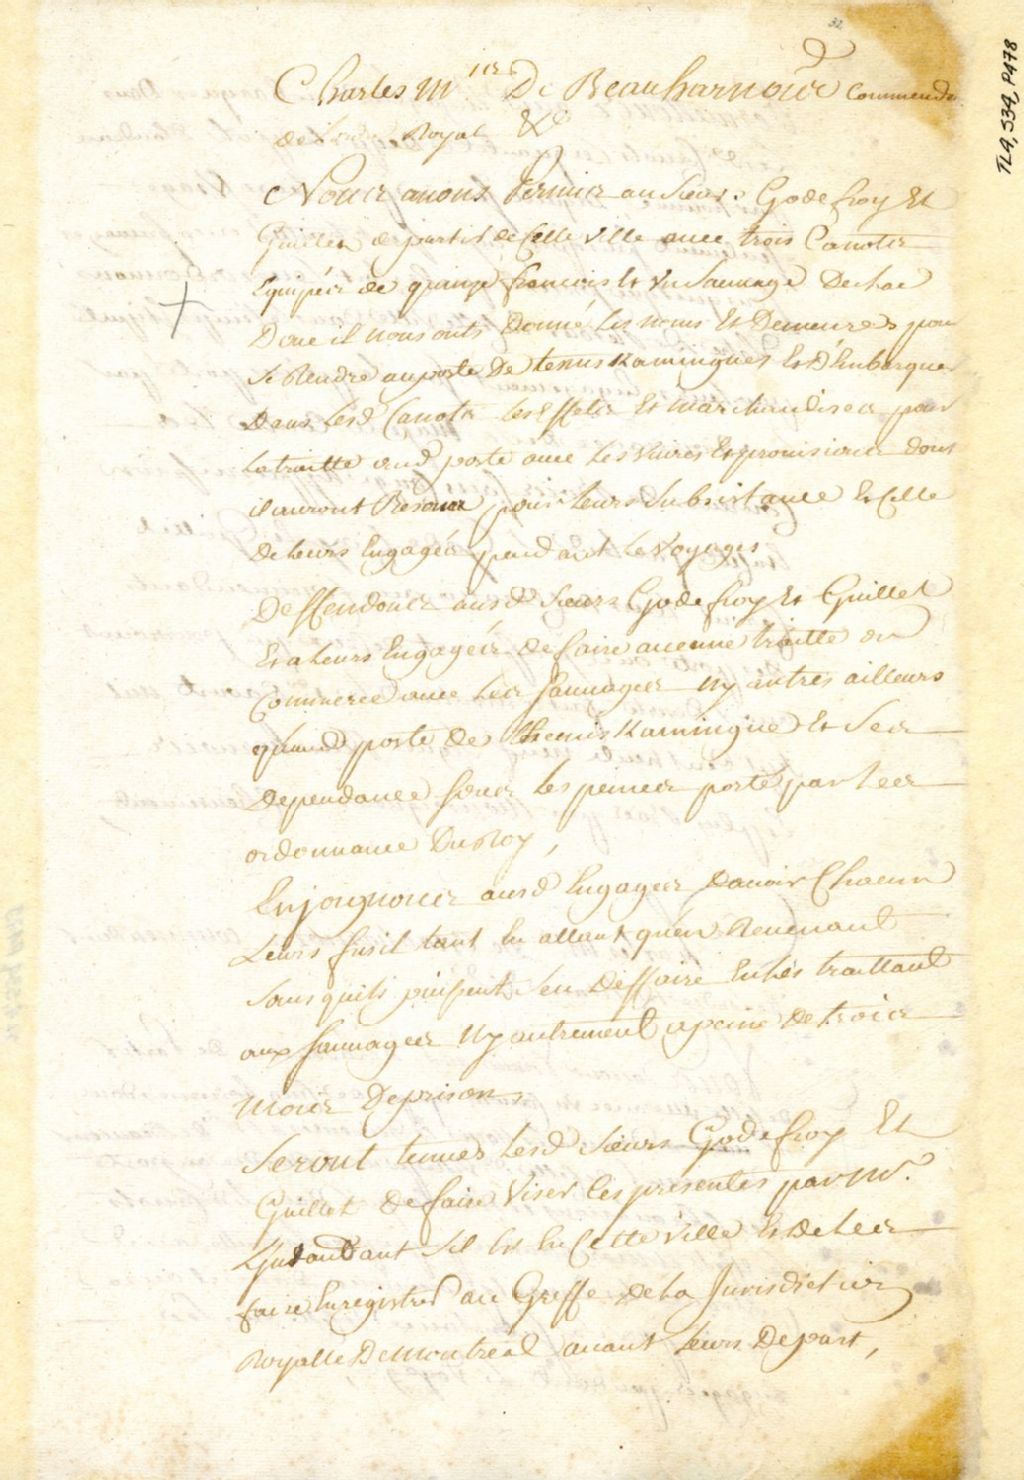 32
TL4, S34, P478
Charles M.is De Beauharnois Commende
de Royal &c
Nous avons Permis au Sieurs Godefroy Et
Guillet de partir de Cette Ville avec trois Canots
Equipéz de quinze francois Et Un Sauvage
Donc il nous onts Donné Les noms Et Demeures pour
Se Rendre au poste De temiskamingues Et D'Embarquer
Dans Lesd Canots Les Effets Et Marchandises pour
La traitte aud poste avec Les Vivres Et provisions dont
il auront Besoin pour Leurs Subsistance Et Celle
De Leurs Engagés pendant Le Voyages
Deffendons ausd Sieurs Godefroy Et Guillet
Et a Leurs Engagéz de faire aucune traitte ou
Commerce avec Les Sauvages Ny autres ailleurs
quaud poste de themiskamingue Et Ses
dependance Sous Les peines porté par Les
ordonnance Du Roy,
Enjoignons ausd Engagez Davoir Chacun
Leurs fusil tant En allant quén Revenant
Sans quils puissent Sen Deffaire En Les traittant
aux Sauvages Ny autrement a peine De trois
Mois De prison,
Seront tenues Lesd Sieurs Godefroy Et
Guillet de faire Viser Les presentes par Mr.
Lintandant Sil Est En Cette Ville Et De Les
faire Enregistrer au Greffe de La Jurisdiction
Royalle De Montreal avant Leurs Depart,